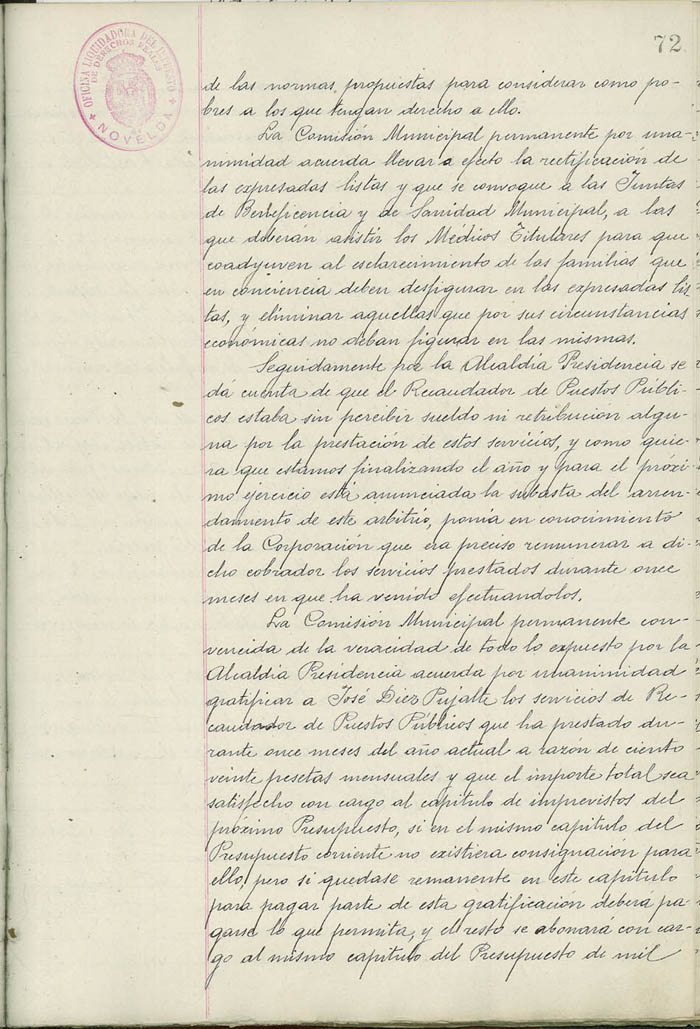 72
OFICINA LIQUIDADORA DEL IMPUESTO
DE DERECHOS REALES
NOVELDA
de las normas, propuestas para considerar como po-
bres a los que tengan derecho a ello.
La Comisión Municipal permanente por una-
nimidad acuerda llevar a efecto la rectificación de
las expresadas listas y que se convoque a las Juntas
de Beneficencia y de Sanidad Municipal, a las
que deberán asistir los Médicos Titulares para que
coadyuven al esclarecimiento de las familias que
en conciencia deben desfigurar en las expresadas lis
tas, y eliminar aquellas que por sus circunstancias
económicas no deban figurar en las mismas.
Seguidamente por la Alcaldía Presidencia se
dá cuenta de que el Recaudador de Puestos Públi-
cos estaba sin percibir sueldo ni retribución algu-
na por la prestación de estos servicios, y como quie-
ra que estamos finalizando el año y para el próxi-
mo ejercicio está anunciada la subasta del arren-
damiento de este arbitrio, ponía en conocimiento
de la Corporación que era preciso remunerar a di-
cho cobrador los servicios prestados durante once
meses en que ha venido efectuandolos.
La Comisión Municipal permanente con-
vencida de la veracidad de todo lo expuesto por la
Alcaldía Presidencia acuerda por unanimidad
gratificar a José Díez Pujalte los servicios de Re-
caudador de Puestos Públicos que ha prestado du-
rante once meses del año actual a razón de ciento
veinte pesetas mensuales y que el importe total sea
satisfecho con cargo al capitulo de imprevistos del
próximo Presupuesto, si en el mismo capitulo del
Presupuesto corriente no existiera consignación para
ello, pero si quedase remanente en este capitulo
para pagar parte de esta gratificación deberá pa-
garse lo que permita, y el resto se abonará con car-
go al mismo capitulo del Presupuesto de mil